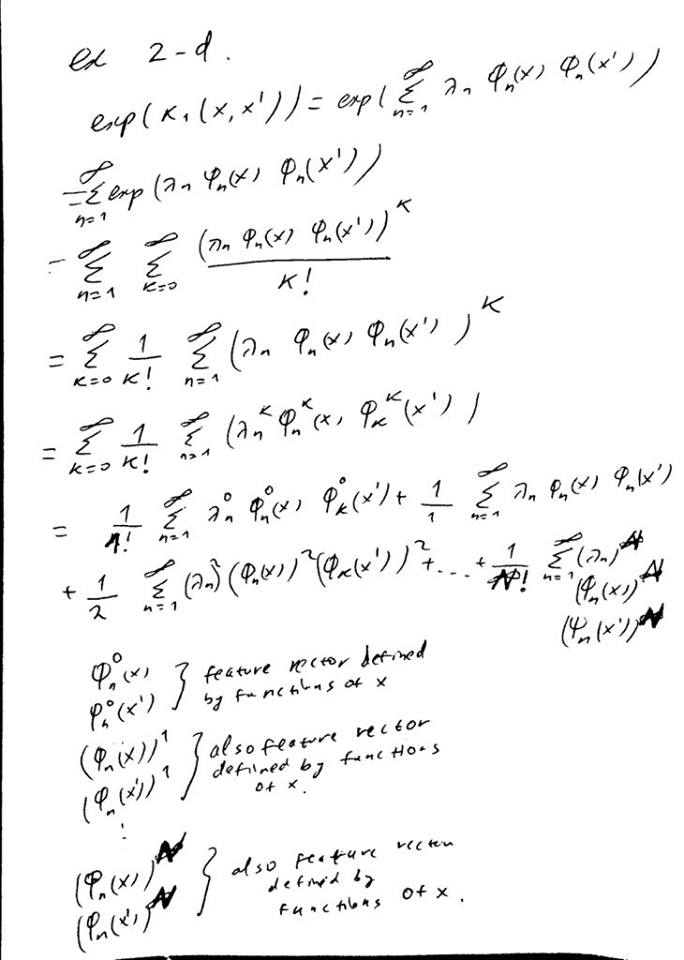 ex 2-d.
exp(K₁(x,x')) = exp(∑_{n=1}^{∞} λn φn(x) φn(x'))
= ∑_{n=1}^{∞} exp(λn φn(x) φn(x'))
= ∑_{n=1}^{∞} ∑_{K=0}^{∞} (λn φn(x) φn(x'))^K / K!
= ∑_{K=0}^{∞} 1/K! ∑_{n=1}^{∞} (λn φn(x) φn(x'))^K
= ∑_{K=0}^{∞} 1/K! ∑_{n=1}^{∞} (λn^K φn^K(x) φK^K(x'))
= 1/1! ∑_{n=1}^{∞} λn^0 φn^0(x) φK^0(x') + 1/1 ∑_{n=1}^{∞} λn φn(x) φn(x')
+ 1/2 ∑_{n=1}^{∞} (λn)^2 (φn(x))^2 (φK(x'))^2 + ... + 1/N! ∑_{n=1}^{∞} (λn)^N
(φn(x))^N
(φn(x'))^N
φn^0(x) } feature vector defined
φn^0(x') by functions of x
(φn(x))^1 } also feature vector
(φn(x'))^1 defined by functions
of x.
⋮
(φn(x))^N } also feature vector
(φn(x'))^N defined by
functions of x.